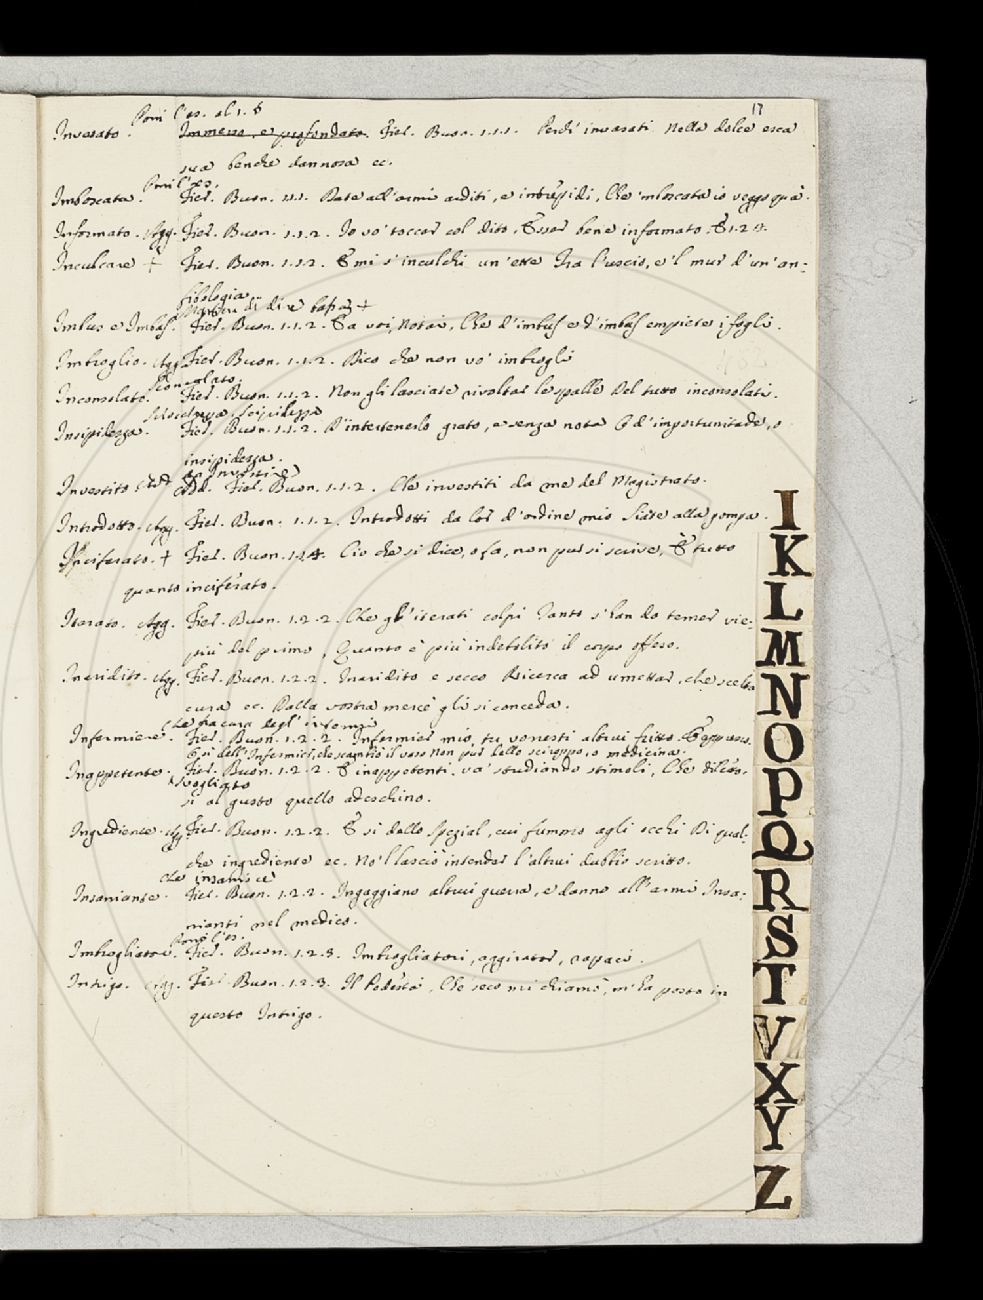 17
Poni l'es. al §. 5
Invasato. Immerso, e profondato. Fier. Buon. 1.1.1. Perch' invasati Nella dolce esca
sua benche dannosa ec.
Poni l'es.
Imboscata. Fier. Buon. 1.1. Date all'armi arditi, e intrepidi, Che 'mboscata io veggo quà.
Informato. Agg. Fier. Buon. 1.1.2. Io vo' toccar col dito, Esser bene informato. E 1.2.
Inculcare + Fier. Buon. 1.1.2. E mi s'inculchi un'esse Tra l'uscio, e 'l mur d'un'an-
fibologia.
Maniera di dire bassa +
Imbus e Imbas. Fier. Buon. 1.1.2. E a voi, Notai, Che d'imbus e d'imbas empiete i fogli.
Imbroglio. Agg. Fier. Buon. 1.1.2. Dico che non vo' imbrogli
Sconsolato.
Inconsolato. Fier. Buon. 1.1.2. Non gli lasciate rivoltar le spalle Del tutto inconsolati.
Scipidezza
Insipidezza. Fier. Buon. 1.1.2. D'intertenerlo grato, e senza nota O d'importunitade, o
insipidezza.
da Investire
Investito Add. Fier. Buon. 1.1.2. Che investiti da me del Magistrato.
Introdotto. Agg. Fier. Buon. 1.1.2. Introdotti da lor d'ordine mio Siate alla pompa.
Inciferato. + Fier. Buon. 1.2.4. Ciò che si dice, o fa, non pur si scrive, E tutto
quanto inciferato.
Iterato. Agg. Fier. Buon. 1.2.2. Che gl'iterati colpi Tanto s'han da temer vie-
più del primo, Quanto è più indebolito il corpo offeso.
Inaridito. Agg. Fier. Buon. 1.2.2. Inaridito e secco Ricerca ad umettar, che scelta
cura ec. Dalla vostra mercè gli si conceda.
Che ha cura degl'infermi
Infermiere. Fier. Buon. 1.2.2. Infermier mio, tu vorresti altrui fitto. E appresso.
E sì dell'Infermier, che scambiò il vaso Non pur dello sciroppo, o medicina.
Inappetente. Fier. Buon. 1.2.2. E inappetenti, va' studiando stimoli, Che
Svogliato
si al gusto quello adeschino.
Ingrediente. Agg. Fier. Buon. 1.2.2. E sì dallo spezial, cui fummo agli occhi Di qual-
che ingrediente ec. No 'l lasciò intender l'altrui dubbio scritto.
che insanisce
Insaniante. Fier. Buon. 1.2.2. Ingaggiano altrui guerra, e danno all'armi Insa-
nianti nel medico.
Poni l'es.
Imbrogliatore. Fier. Buon. 1.2.3. Imbrogliatori, aggirator, rapaci.
Intrigo. Agg. Fier. Buon. 1.2.3. Il Podestà, Che seco mi chiamò, m'ha posto in
questo Intrigo.
I
K
L
M
N
O
P
Q
R
S
T
V
X
Y
Z